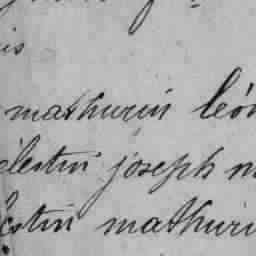 is
mathurin léon
élestin joseph m
estin mathuri